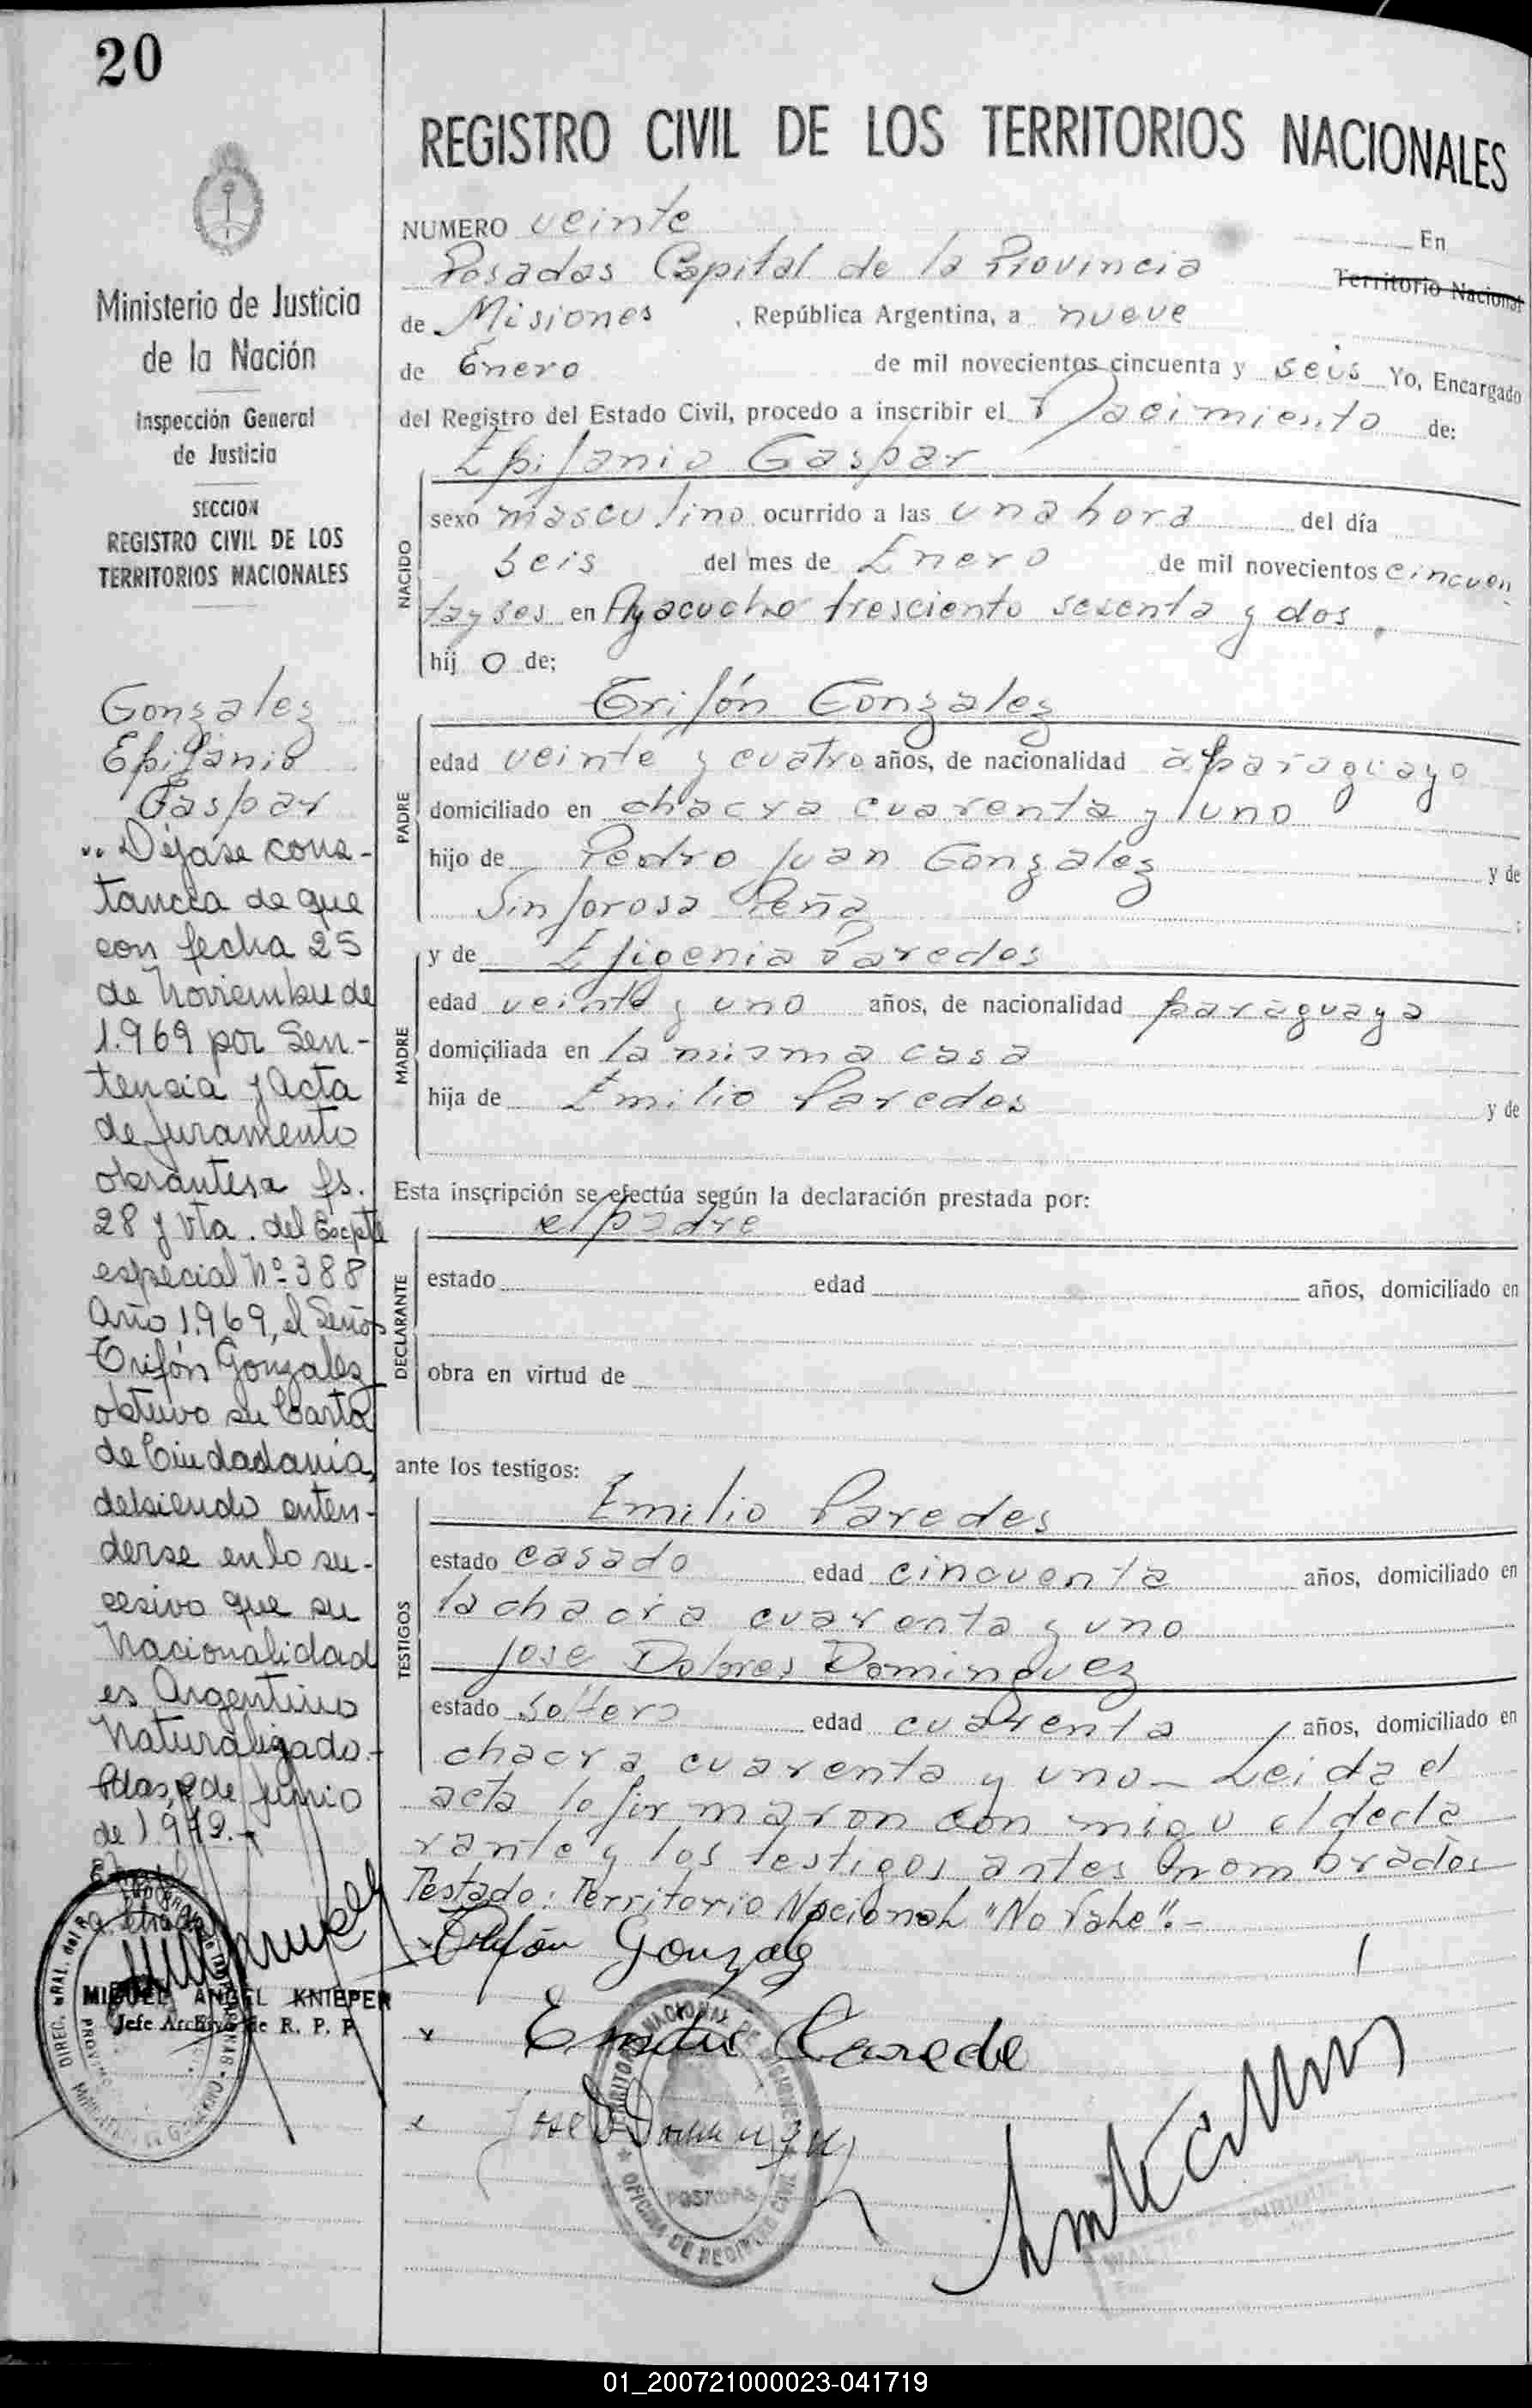 20
Ministerio de Justicia
de la Nación
Inspección General
de Justicia
SECCION
REGISTRO CIVIL DE LOS
TERRITORIOS NACIONALES
Gonzalez
Epifanio
Gaspar
Déjase cons-
tancia de que
con fecha 25
de Noviembre de
1.969 por Sen-
tencia y Acta
de juramento
obrantes a fs.
28 y vta. del Expte
especial Nº 388
Año 1.969, el Señor
Trifón Gonzalez
obtuvo su Carta
de Ciudadanía,
debiendo enten-
derse en lo su-
cesivo que su
Nacionalidad
es Argentino
Naturalizado.-
Pdas, 2 de Junio
de 1972.-
MIGUEL ANGEL KNIEPER
Jefe Archivo de R. P. P.
REGISTRO CIVIL DE LOS TERRITORIOS NACIONALES
NUMERO veinte En
Posadas Capital de la Provincia Territorio Nacional
de Misiones , República Argentina, a nueve
de Enero de mil novecientos cincuenta y seis Yo, Encargado
del Registro del Estado Civil, procedo a inscribir el Nacimiento de:
Epifanio Gaspar
NACIDO
sexo masculino ocurrido a las una hora del día
seis del mes de Enero de mil novecientos cincuen
ta y ses en Ayacucho tresciento sesenta y dos.
hij o de:
Trifón Gonzalez
PADRE
edad veinte y cuatro años, de nacionalidad paraguayo
domiciliado en chacra cuarenta y uno
hijo de Pedro Juan Gonzalez y de
Sinforosa Peña ;
y de Efigenia Paredes
MADRE
edad veinte y uno años, de nacionalidad paraguaya
domiciliada en la misma casa
hija de Emilio Paredes y de
Esta inscripción se efectúa según la declaración prestada por:
el padre
DECLARANTE
estado edad años, domiciliado en
obra en virtud de
ante los testigos:
Emilio Paredes
TESTIGOS
estado casado edad cincuenta años, domiciliado en
la chacra cuarenta y uno
Jose Dolores Dominguez
estado soltero edad cuarenta años, domiciliado en
chacra cuarenta y uno - Leida el
acta la firmaron con migo el decla
rante y los testigos antes nombrados
Testado: Territorio Nacional "No Vale".-
Trifón Gonzalez
Emilio Parede
Jose D Dominguez
TERRITORIO NACIONAL DE MISIONES
POSADAS
OFICINA DE REGISTRO CIVIL
01_200721000023-041719